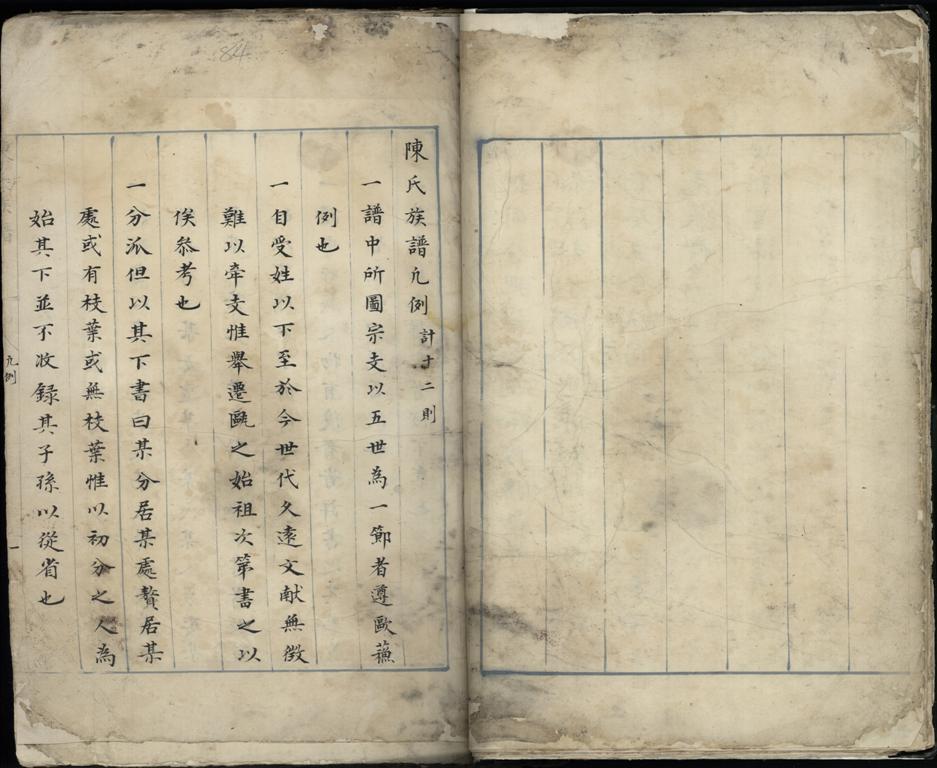 陳氏族譜凡例計十二則
一譜中所圖宗支以五世為一節者遵歐蘓
例也
一自受姓以下至於今世代久遠文献無徴
難以牽支惟舉遷甌之始祖次第書之以
俟叅考也
一分派但以其下書曰某分居某處贅居某
處或有枝葉或無枝葉惟以初分之人為
始其下並不收録其子孫以從省也
凡例
一
84